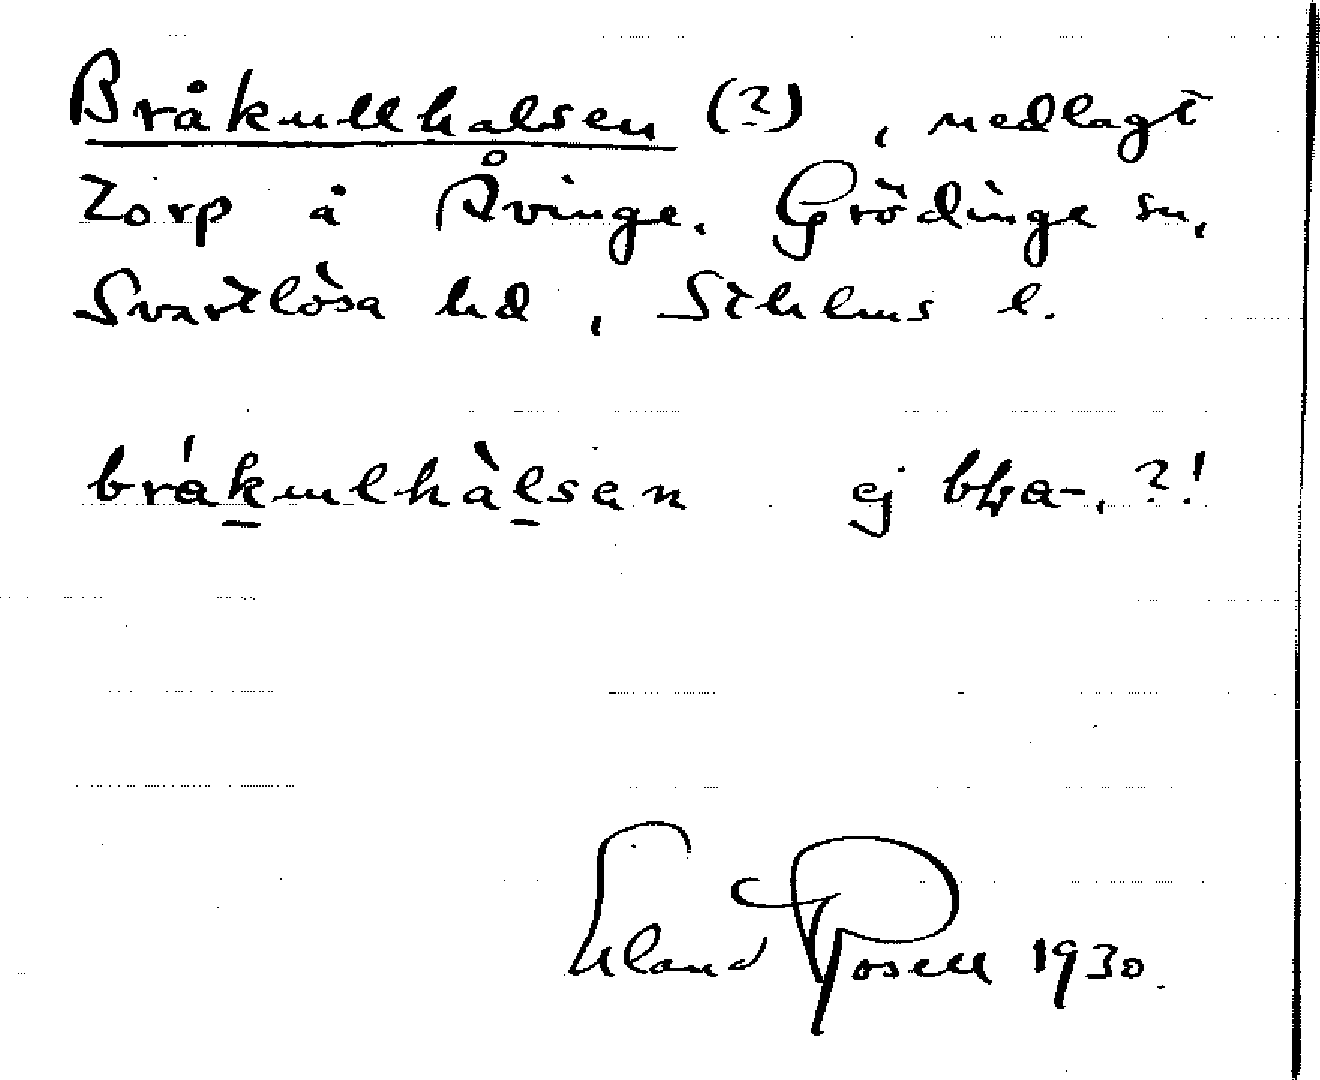 Bråkullhalsen (?), nedlagt
Torp å Åvinge. Grödinge sn,
Svartlösa hd, Sthlms l.
bråkulhàlsen ej
Erland Rosell 1930.